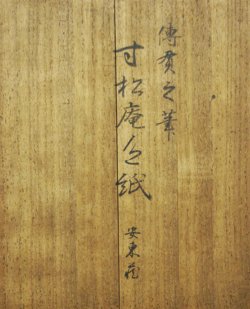 傳貫之筆
寸松庵色紙
安東藏